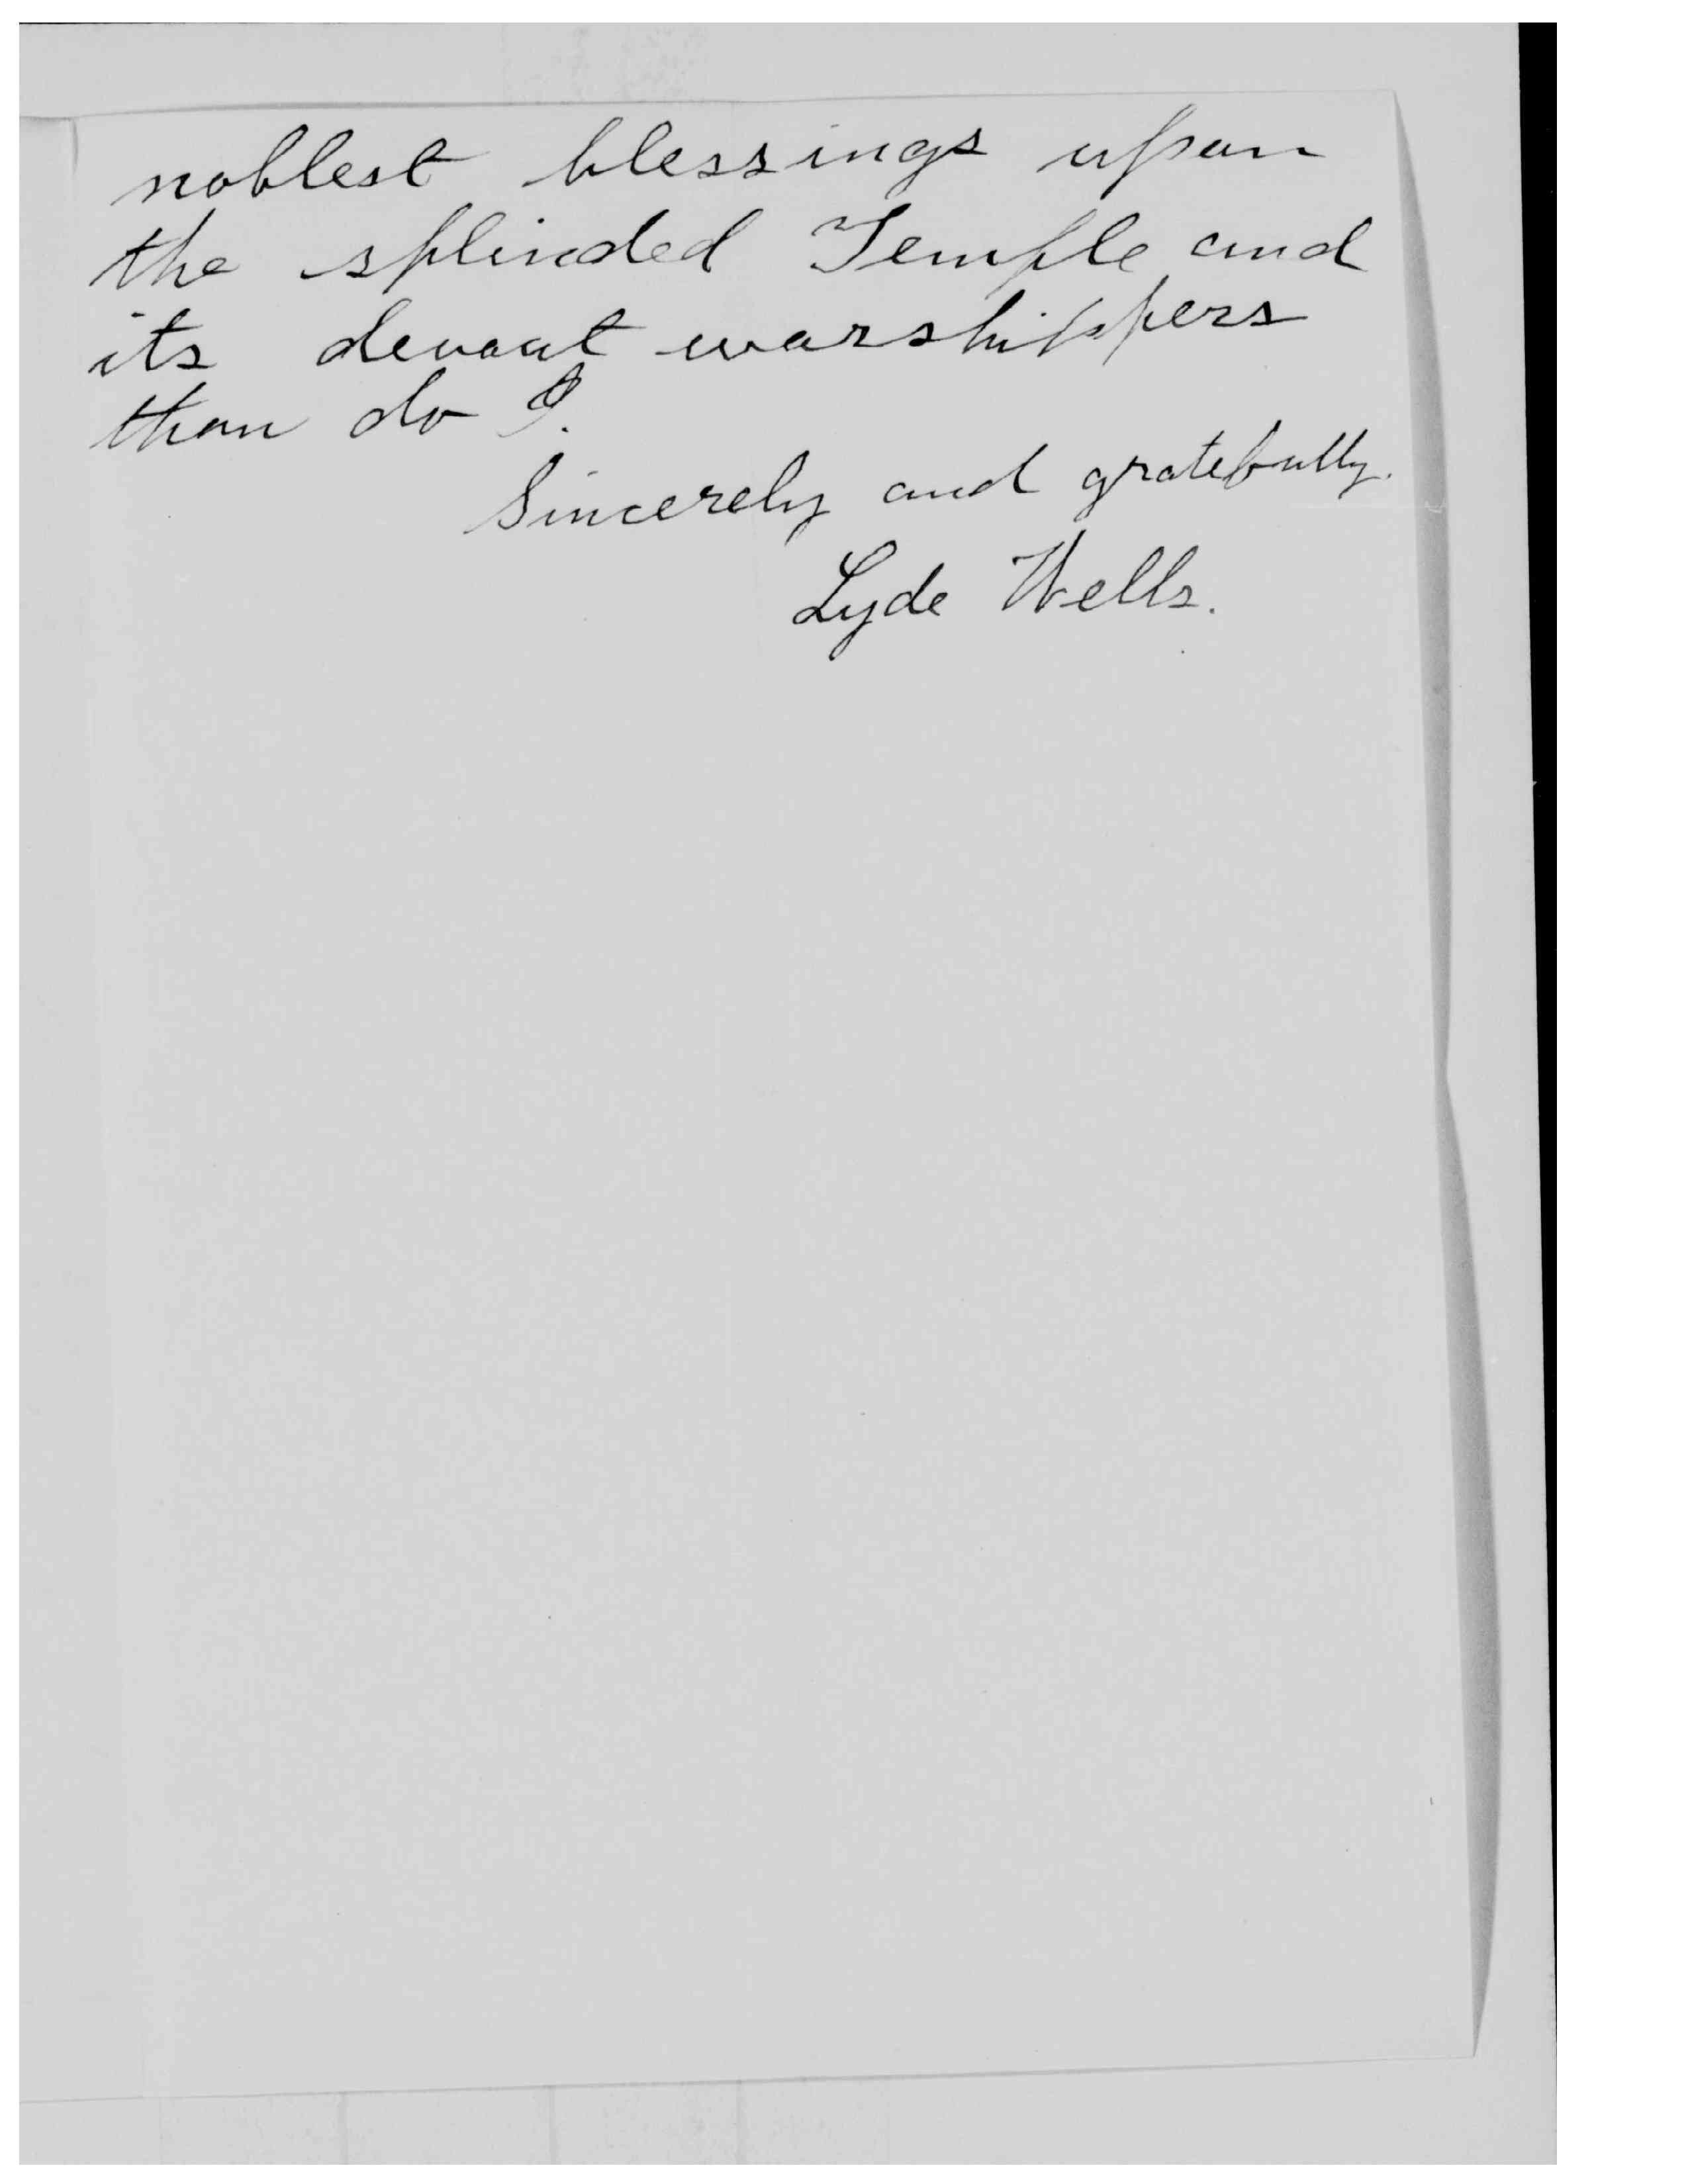 noblest blessings upon
the splinded Temple and
its devout worshippers
than do I.
Sincerely and gratefully.
Lyde Wells.